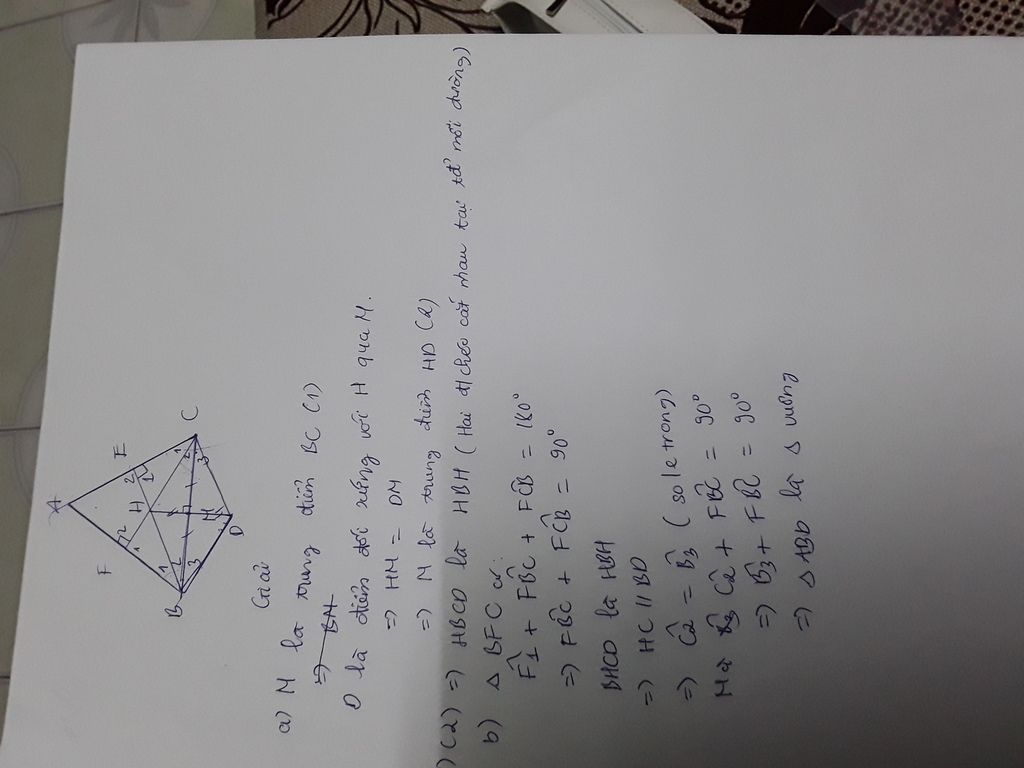 A
F
E
2
1
2
1
H
B
1
2
3
C
1
3
M
D
Giải
a) M là trung điểm BC (1)
D là điểm đối xứng với H qua M.
=> HM = DM
=> M là trung điểm HD (2)
) (2) => HBCD là HBH ( Hai đ/chéo cắt nhau tại tđ mỗi đường)
b) △ BFC có:
F̂1 + FB̂C + FĈB = 180°
=> FB̂C + FĈB = 90°
BHCD là HBH
=> HC // BD
=> Ĉ2 = B̂3 ( so le trong)
Mà Ĉ2 + FB̂C = 90°
=> B̂3 + FB̂C = 90°
=> △ ABD là △ vuông